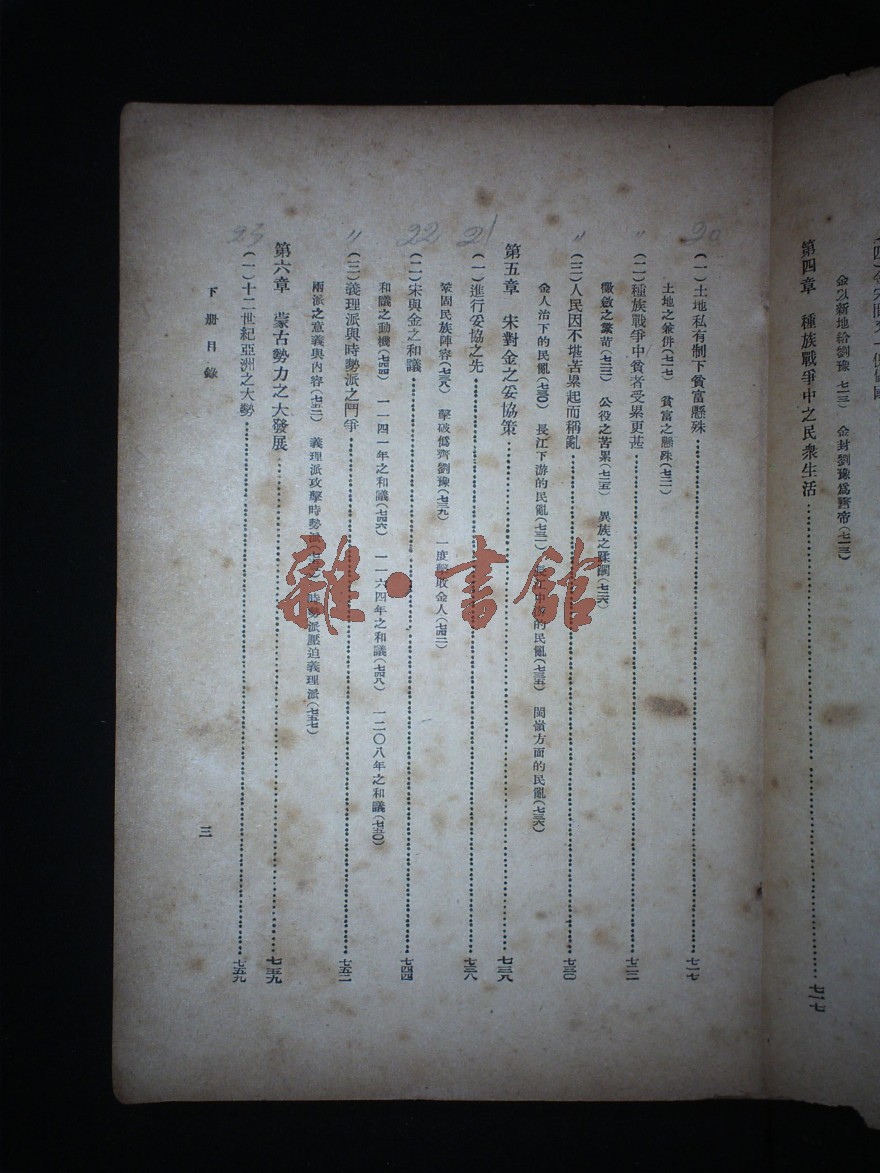 金以新地給劉豫(七一三) 金封劉豫爲齊帝(七一三)
第四章 種族戰爭中之民衆生活 七一七
20
(一)土地私有制下貧富懸殊 七一七
土地之兼併(七一七) 貧富之懸殊(七二一)
〃
(二)種族戰爭中貧者受累更甚 七二二
徵斂之繁苛(七二二) 公役之苦累(七二五) 異族之蹂躪(七二六)
〃
(三)人民因不堪苦累起而稱亂 七三〇
金人治下的民亂(七三〇) 長江下游的民亂(七三一) 長江中游的民亂(七三五) 閩嶺方面的民亂(七三六)
第五章 宋對金之妥協策 七三八
21
(一)進行妥協之先 七三八
鞏固民族陣容(七三八) 擊破僞齊劉豫(七三九) 一度擊敗金人(七四二)
22
(二)宋與金之和議 七四四
和議之動機(七四四) 一一四一年之和議(七四六) 一一六四年之和議(七四八) 一二〇八年之和議(七五〇)
〃
(三)義理派與時勢派之鬥爭 七五二
兩派之意義與內容(七五二) 義理派攻擊時勢派 時勢派壓迫義理派(七五七)
第六章 蒙古勢力之大發展 七五九
23
(一)十二世紀亞洲之大勢 七五九
下册目錄
三
雜·書館